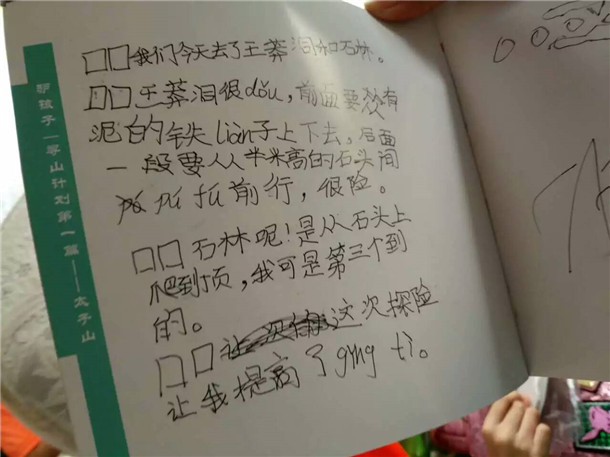 驴孩子—寻山计划第一篇——太子山
□□我们今天去了王莽洞和石林。
□□王莽洞很dǒu,前面要从有
泥的铁liàn子上下去,后面
一段要从半米高的石头间
pú fú前行,很险。
□□石林呢!是从石头上
爬到顶,我可是第三个到
的。
□□这次探险
让我提高了ging tì。